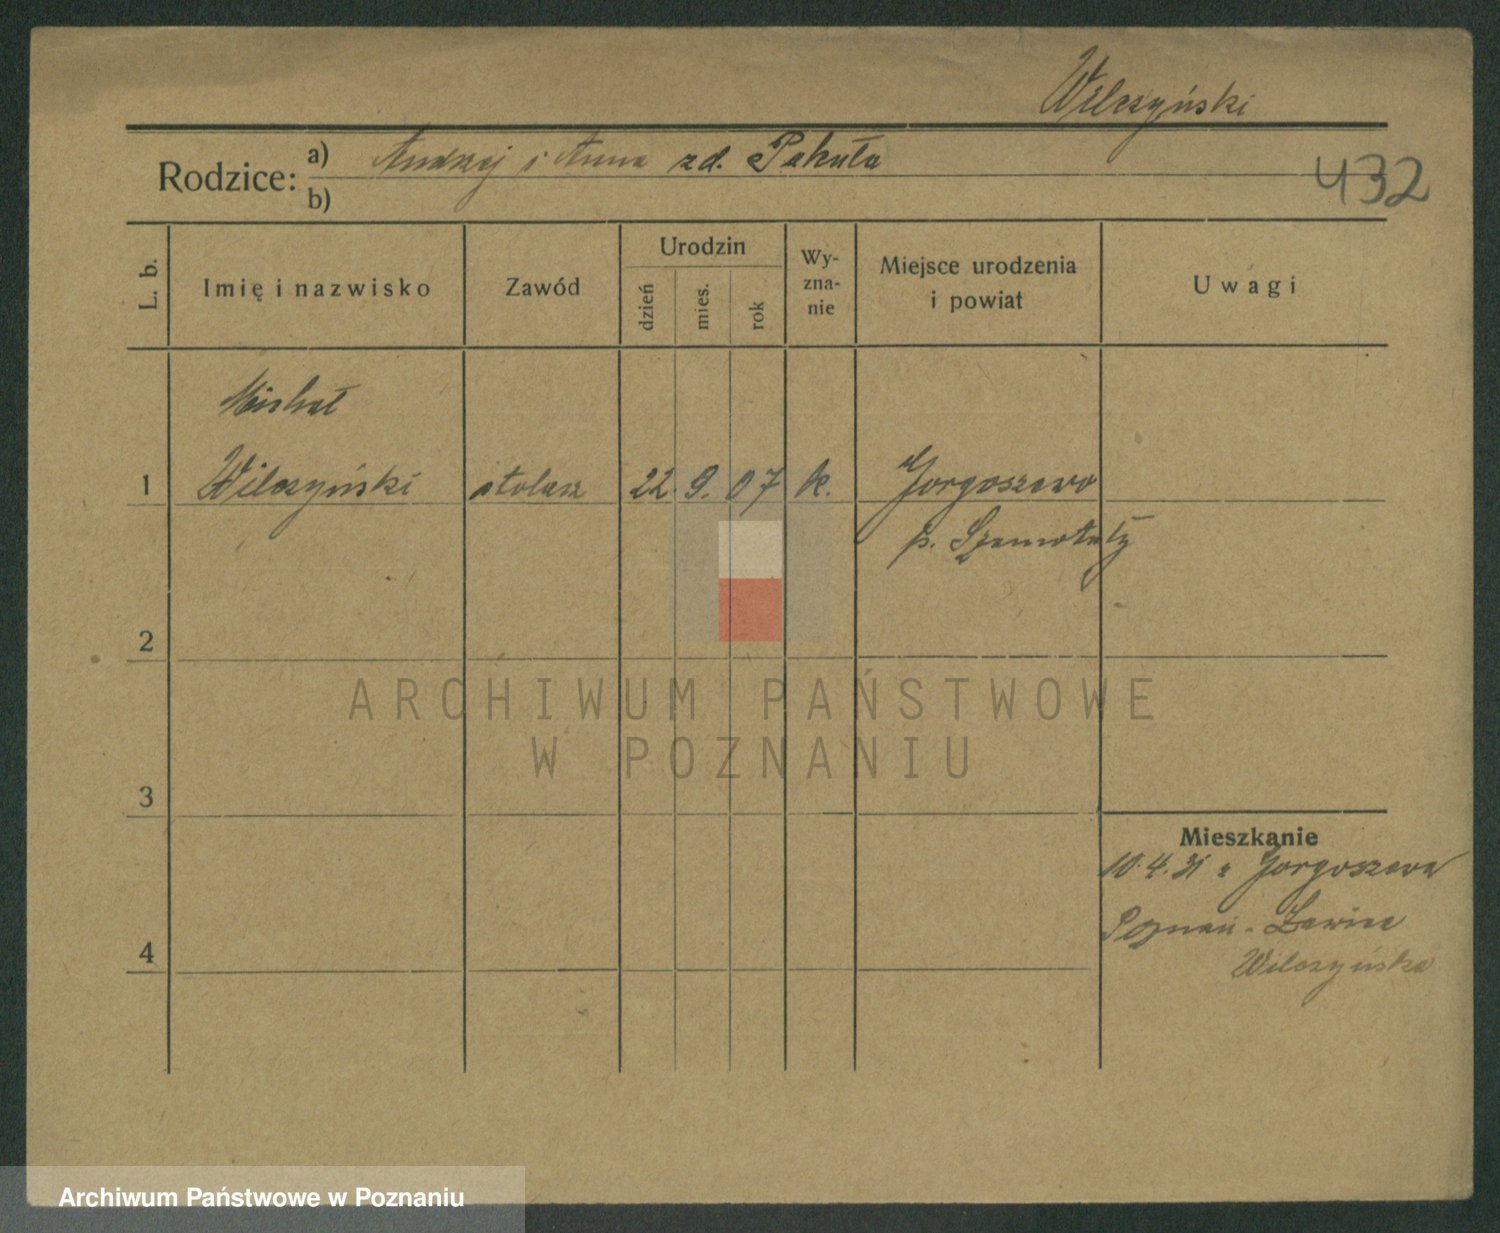 Wilczyński
Rodzice: a) Andrzej i Anna zd. Pakuła
b)
432
L. b.
Imię i nazwisko
Zawód
Urodzin
dzień
mies.
rok
Wy-
zna-
nie
Miejsce urodzenia
i powiat
Uwagi
Michał
1 Wilczyński stolarz 22. 9. 07 k. Gorgoszewo
p. Szamotuły
2
ARCHIWUM PAŃSTWOWE
W POZNANIU
3
Mieszkanie
10.4.31 z Gorgoszewa
4
Poznań - Ławica
Wilczyńska
Archiwum Państwowe w Poznaniu